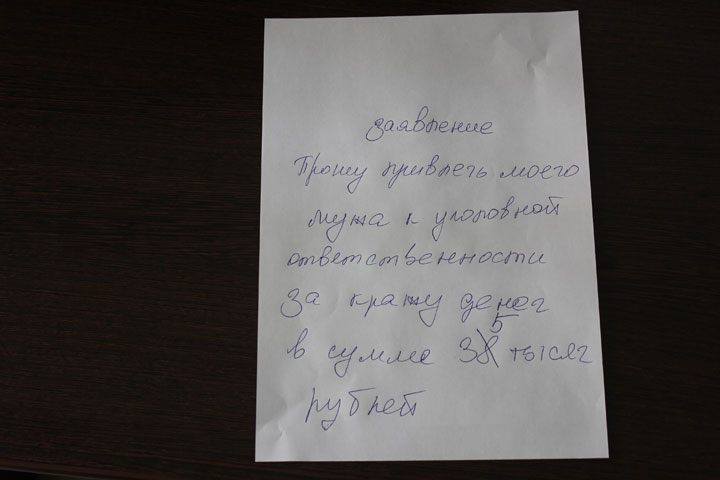 заявление
Прошу привлечь моего
мужа к уголовной
ответственности
за кражу денег
5
в сумме 38 тысяч
рублей